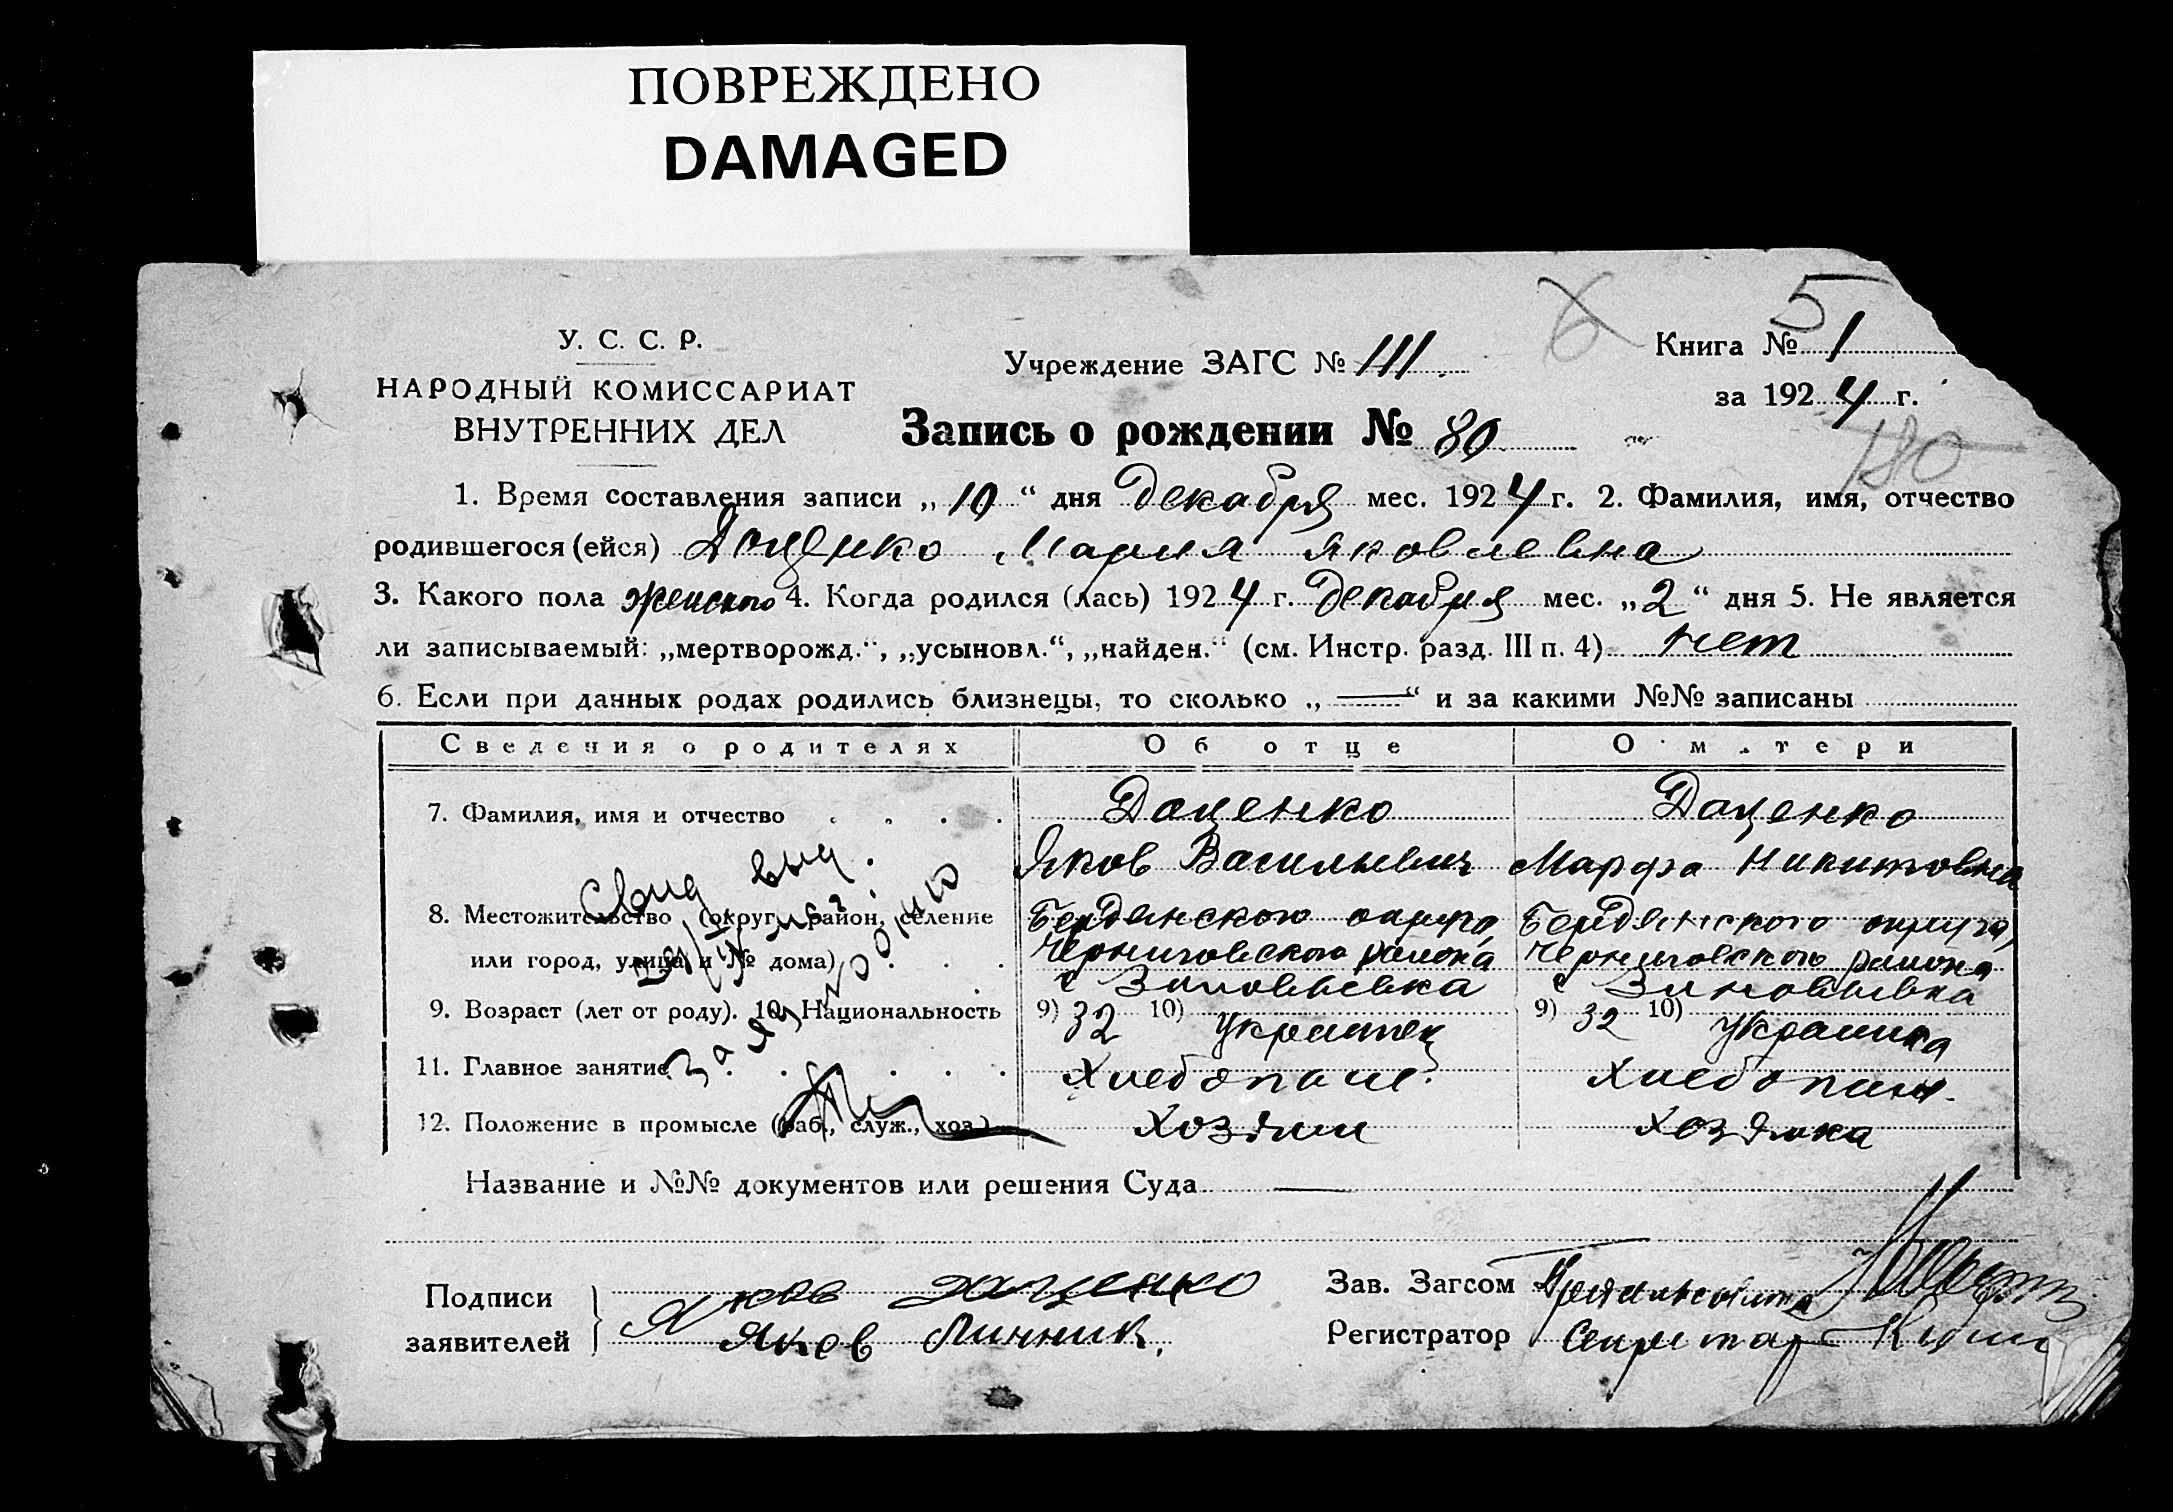 ПОВРЕЖДЕНО
DAMAGED
5
У. С. С. Р.
Учреждение ЗАГС № 111.
Книга № 1
НАРОДНЫЙ КОМИССАРИАТ
за 1924 г.
ВНУТРЕННИХ ДЕЛ
Запись о рождении № 80
180
1. Время составления записи „10“ дня Декабря мес. 1924 г. 2. Фамилия, имя, отчество
родившегося (ейся) Доценко Мария Яковлевна
3. Какого пола женского 4. Когда родился (лась) 1924 г. Декабря мес. „2“ дня 5. Не является
ли записываемый: „мертворожд.“, „усыновл.“, „найден.“ (см. Инстр. разд. III п. 4) нет
6. Если при данных родах родились близнецы, то сколько „—“ и за какими №№ записаны
Сведения о родителях Об отце О матери
7. Фамилия, имя и отчество Доценко Доценко
Яков Васильевич Марфа Никитовна
Свид выд.
8. Местожительство (округ, район, селение Бердянского округа Бердянского округа,
или город, улица и № дома) Черниговского района Черниговского района
с Зиновьевка с Зиновьевка
9. Возраст (лет от роду). 10. Национальность 9) 32 10) Украинец 9) 32 10) Украинка
11. Главное занятие Хлебопаш. Хлебопаш.
12. Положение в промысле (раб., служ., хоз.) Хозяин Хозяйка
Название и №№ документов или решения Суда —
Подписи Яков Доценко Зав. Загсом
заявителей Яков Линник, Регистратор Секретар